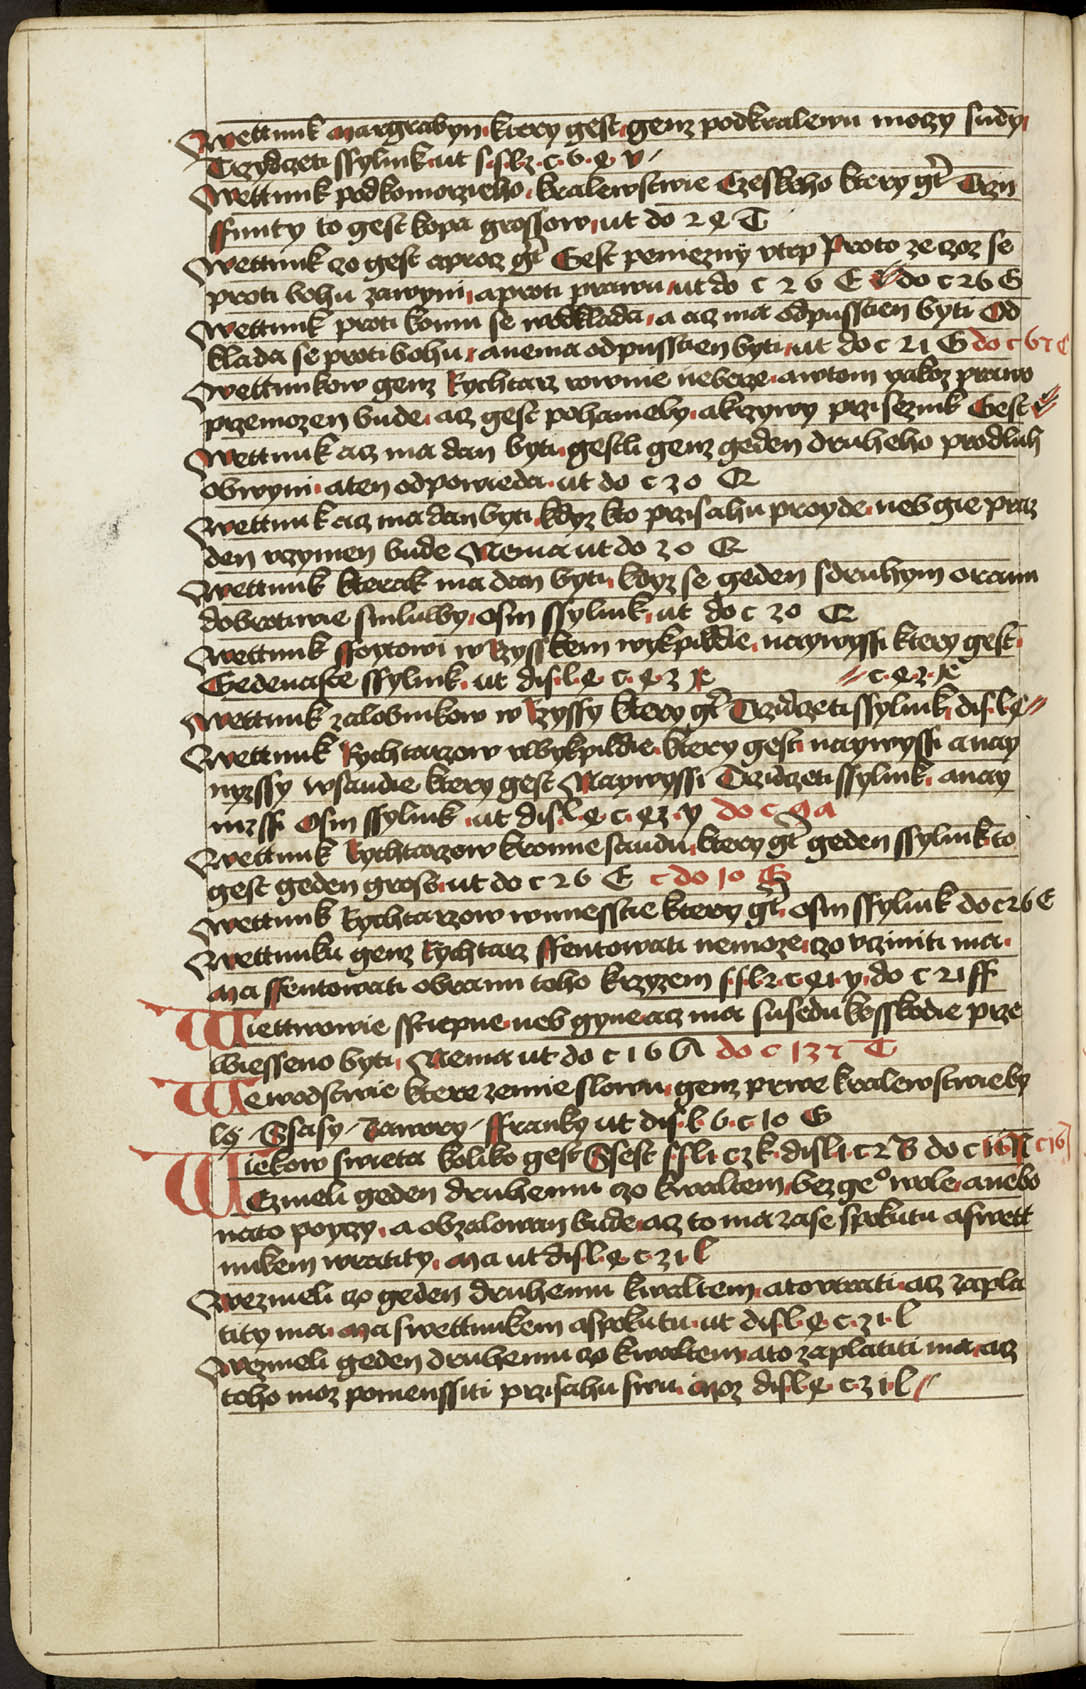 Wettunk margrabyn ktery gest genz podkralewu moczy sudy
Trzydczeti ssylink ut
Wettunk podkomorzieho kralewstwie Czeskeho ktery gt Trzy
ffunty to gest kopa grossow ut do 2
Wettunk czo gest aprocz gt Gest peniezny vtrp Proto ze czoz se
proti bohu zawyni aproti prawu ut do c 26 E do c 26 G
Wettunk proti komu se wodklada a acz ma odpusstien byti Od
klada se proti bohu anema odpusstien byti ut do c 21 G do c 67
Wettunkow genz Rychtarz rownie nebeze awtom yakoz prawo
przemozen bude acz gest pohanieby akrzywy prziseznik Gest
Wettunk acz ma dan byti gestli genz geden druheho prodluh
obwyni aten odpowieda ut do c 20
Wettunk acz ma dan byti kdyz kto przisahu proyde neb gie praz
den vczynien bude Nema ut do 20
Wettunk kterak ma dan byti kdyz se geden sdruhym oranu
dobrotiwie smluwy osm ssylink ut do c 20
Wettunk ffoytowi w Rzysskem wykpildie naywyssi ktery gest
Gedenaste ssylink ut disl c c 2
Wettunk zalobnikow w Rzyssy ktery gt Trzidczeti ssylink disl
Wettunk Rychtarzow wwykpildie ktery gest naywyssi a nay
nyzssy wsaudie ktery gest Naywyssi Trzidczeti ssylink anay
nizssi Osm ssylink ut disl c y do c 9 a
Wettunk Rychtarzow kromie saudu ktery gt geden ssylink to
gest geden gross ut do c 26 E c do 10 G
Wettunk Rychtarzow wmiesstie ktery gt osm ssylink do c 26 E
Wettunku genz Rychtarz ffentowati nemoze czo vcziniti ma
Ma ffentowati obranu toho krzyzem do c 21 ff
Wiettwowie sstiepne neb gyne acz ma susedu kesskodie prze
wiesseno byti Nema ut do c 16 A do c 137
Wewodstwie ktere zemie slowu genz prwe kralewstwie by
ly Ssasy Bawory ffranky ut disl 6 c 10 G
Wiekow swieta koliko gest Ssest disl c 2 B do c 16
Wezmeli geden druhemu czo kwaltem bez geo wole anebo
nato poyczy a obzalowan bude acz to ma zase spokutu aswett
nukem wratity Ma ut disl c 21 l
Wezmeli czo geden druhemu kwaltem atovtrati acz zapla
tity ma Ma swettnukem aspokutu ut disl c 21 l
Wezmeli geden druhemu czo kwaltem ato zaplatiti ma acz
toho moz pomenssiti przisahu swu Moz disl c 21 l